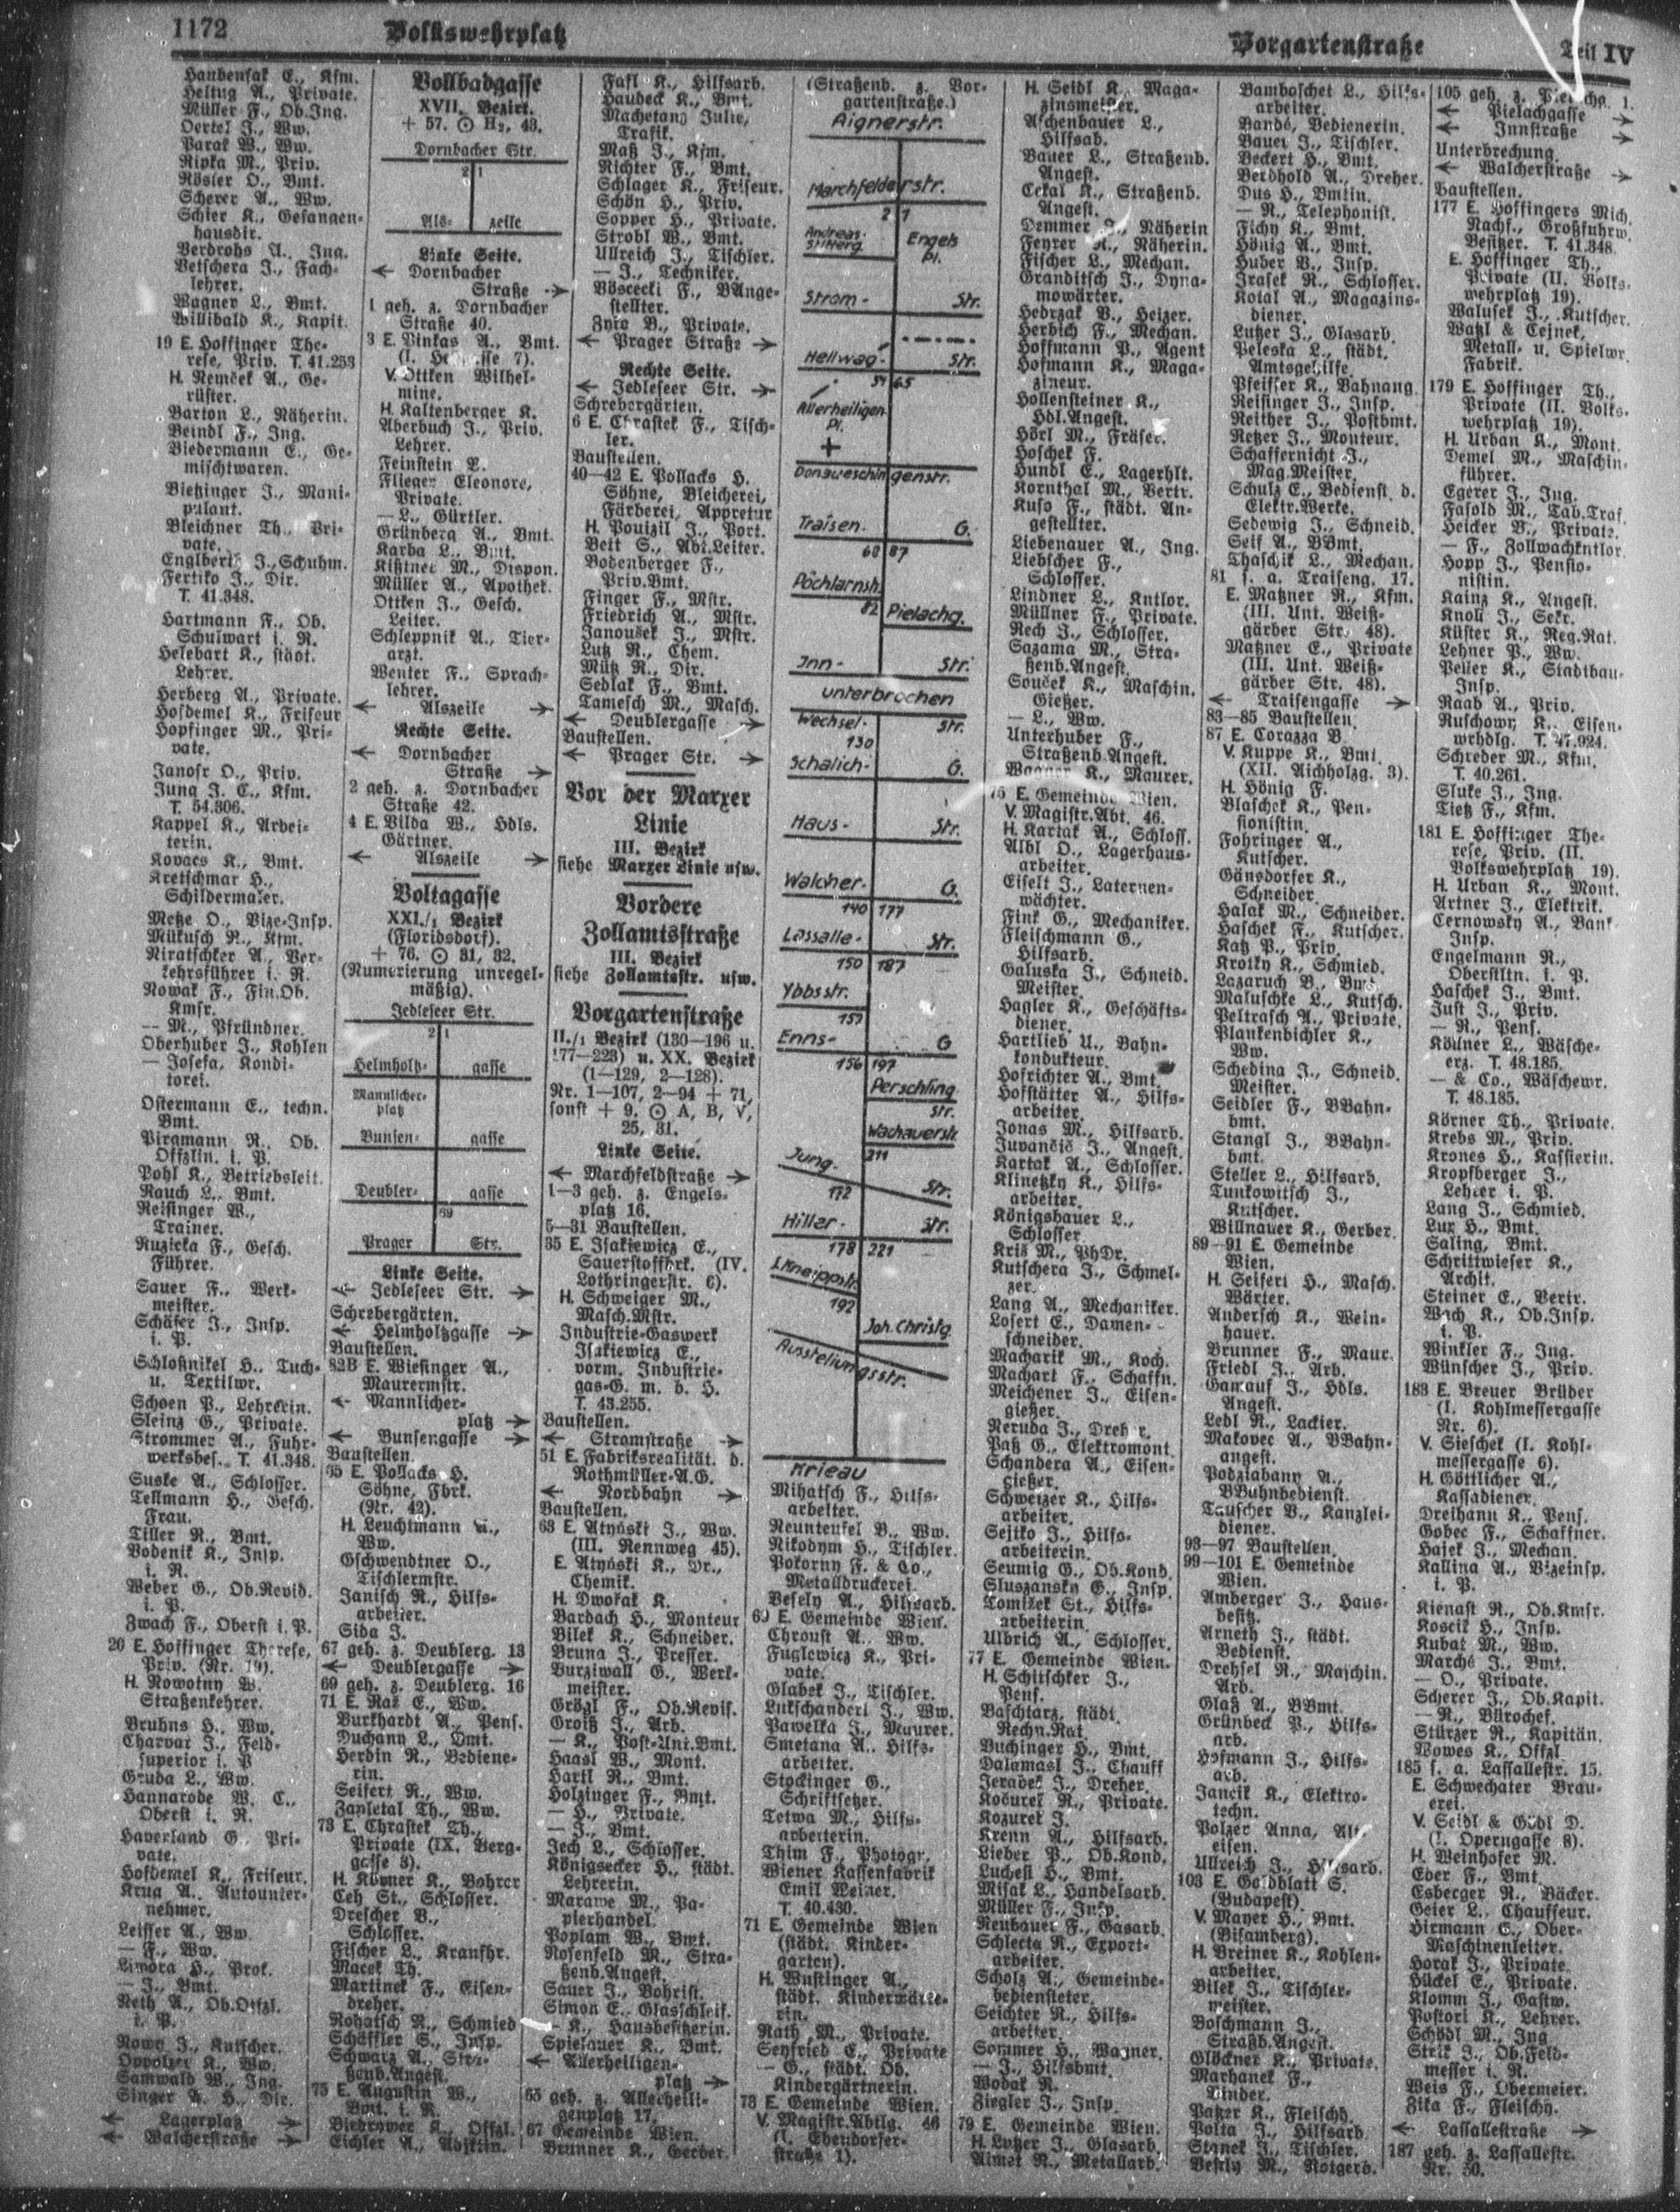 1172
Volkswehrplatz
Vorgartenstraße
Teil IV
Haubensak E., Kfm.
Heltug A., Private.
Müller F., Ob.Ing.
Oertel J., Ww.
Parak W., Ww.
Ripka M., Priv.
Rösler O., Bmt.
Scherer A., Ww.
Schier K., Gefangen-
hausdir.
Verdroßs A., Ing.
Vetschera J., Fach-
lehrer.
Wagner L., Bmt.
Willibald K., Kapit.
19 E. Hoffinger The-
rese, Priv. T. 41.253
H. Nemček A., Ge-
rüster.
Barton L., Näherin.
Beindl F., Ing.
Biedermann E., Ge-
mischtwaren.
Bietzinger J., Mani-
pulant.
Bleichner Th., Pri-
vate.
Englbert J., Schuhm.
Fertiko J., Dir.
T. 41.348.
Hartmann F., Ob.
Schulwart i. R.
Helebart K., städt.
Lehrer.
Herberg A., Private.
Hofdemel K., Friseur
Hopfinger M., Pri-
vate.
Janosr O., Priv.
Jung J. C., Kfm.
T. 54.306.
Kappel K., Arbei-
terin.
Kovacs K., Bmt.
Kretschmar H.,
Schildermaler.
Metze O., Vize-Insp.
Mikusch R., Kfm.
Niratschker A., Ver-
kehrsführer i. R.
Nowak F., Fin.Ob.
Kmsr.
— M., Pfründner.
Oberhuber J., Kohlen
— Josefa, Kondi-
torei.
Ostermann E., techn.
Bmt.
Pirgmann R., Ob.
Offzln. i. P.
Pohl K., Betriebsleit.
Rauch L., Bmt.
Reisinger W.,
Trainer.
Ruzicka F., Gesch.
Führer.
Sauer F., Werk-
meister.
Schäfer J., Insp.
i. P.
Schloßnikel H., Tuch-
u. Textilwr.
Schoen P., Lehrerin.
Sleinz G., Private.
Strommer A., Fuhr-
werksbes. T. 41.348.
Suske A., Schlosser.
Tellmann H., Gesch.
Frau.
Tiller R., Bmt.
Vodenik K., Insp.
i. R.
Weber G., Ob.Revid.
i. P.
Zwach F., Oberst i. P.
20 E. Hoffinger Therese,
Priv. (Nr. 19).
H. Nowotny W.
Straßenkehrer.
Bruhns H., Ww.
Charvat J., Feld-
superior i. P.
Gruda L., Ww.
Hannarode W. C.,
Oberst i. R.
Haverland G., Pri-
vate.
Hofdemel K., Friseur.
Krug A., Autounter-
nehmer.
Leisser A., Ww.
— F., Ww.
Limora H., Prok.
— J., Bmt.
Neth A., Ob.Offzl.
i. P.
Nowy J., Kutscher.
Oppolzer K., Ww.
Samwald W., Ing.
Singer A. H., Dir.
← Lagerplatz →
← Walcherstraße →
Vollbadgasse
XVII. Bezirk.
+ 57. ⊙ H₂, 43.
Dornbacher Str.
2 1
Als- zeile
Linke Seite.
← Dornbacher
Straße →
1 geh. z. Dornbacher
Straße 40.
3 E. Pinkas A., Bmt.
V. Ottken Wilhel-
mine.
H. Kaltenberger K.
Aberbuch J., Priv.
Lehrer.
Feinstein L.
Flieger Eleonore,
Private.
— L., Gürtler.
Grünberg A., Bmt.
Karba L., Bmt.
Kißtner M., Dispon.
Müller A., Apothek.
Ottken J., Gesch.
Leiter.
Schleppnik A., Tier-
arzt.
Wenter F., Sprach-
lehrer.
← Alszeile →
Rechte Seite.
← Dornbacher
Straße →
2 geh. z. Dornbacher
Straße 42.
4 E. Bilda W., Hdls.
Gärtner.
← Alszeile →
Voltagasse
XXI./1 Bezirk
(Floridsdorf).
+ 76. ⊙ 31, 32.
(Numerierung unregel-
mäßig).
Jedleseer Str.
2 1
Helmholtz- gasse
Mannlicher-
platz
Bunsen- gasse
Deubler- gasse
69
Prager Str.
Linke Seite.
← Jedleseer Str. →
Schrebergärten.
← Helmholtzgasse →
Baustellen.
82B E. Wiesinger A.,
Maurermstr.
← Mannlicher-
platz →
← Bunsengasse →
Baustellen.
65 E. Pollacks H.
Söhne, Fbrk.
(Nr. 42).
H. Leuchtmann A.,
Ww.
Gschwendtner O.,
Tischlermstr.
Janisch R., Hilfs-
arbeiter.
Sida J.
67 geh. z. Deublerg. 13
← Deublergasse →
69 geh. z. Deublerg. 16
71 E. Raz E., Ww.
Burkhardt A., Pens.
Duchany L., Bmt.
Herdin R., Bediene-
rin.
Seifert R., Ww.
Zapletal Th., Ww.
73 E. Chrastek Th.,
Private (IX. Berg-
gasse 3).
H. Körner K., Bohrer
Ceh St., Schlosser.
Drescher V.,
Schlosser.
Fischer L., Kranfhr.
Macek Th.
Martinek F., Eisen-
dreher.
Rohatsch R., Schmied
Schäffler S., Insp.
Schwarz A., Stra-
ßenb.Angest.
75 E. Augustin W.,
Bmt. i. R.
Bierbower K., Offzl.
Eichler A., Adjktin.
Fakl K., Hilfsarb.
Haudeck K., Bmt.
Machetanz Julie,
Trafik.
Maß J., Kfm.
Richter F., Bmt.
Schlager K., Friseur.
Schön H., Priv.
Sopper H., Private.
Strobl W., Bmt.
Ullreich J., Tischler.
— J., Techniker.
Vöscecki F., BAnge-
stellter.
Zyro B., Private.
← Prager Straße →
Rechte Seite.
← Jedleseer Str. →
Schrebergärten.
6 E. Chrastek F., Tisch-
ler.
Baustellen.
40—42 E. Pollacks H.
Söhne, Bleicherei,
Färberei, Appretur
H. Pouizil J., Port.
Beit S., Abt.Leiter.
Bodenberger F.,
Priv.Bmt.
Finger F., Mstr.
Friedrich A., Mstr.
Janoušek J., Mstr.
Lutz R., Chem.
Mütz R., Dir.
Sedlak F., Bmt.
Tamesch M., Masch.
← Deublergasse →
Baustellen.
← Prager Str. →
Vor der Marxer
Linie
III. Bezirk
siehe Marxer Linie usw.
Vordere
Zollamtsstraße
III. Bezirk
siehe Zollamtsstr. usw.
Vorgartenstraße
II./1 Bezirk (130—196 u.
177—223) u. XX. Bezirk
(1—129, 2—128).
Nr. 1—107, 2—94 + 71,
sonst + 9. ⊙ A, B, V,
25, 31.
Linke Seite.
← Marchfeldstraße →
1—3 geh. z. Engels-
platz 16.
5—31 Baustellen.
35 E. Isakiewicz E.,
Sauerstoffbrk. (IV.
Lothringerstr. 6).
H. Schweiger M.,
Masch.Mstr.
Industrie-Gaswerk
Isakiewicz E.,
vorm. Industrie-
gas-G. m. b. H.
T. 43.255.
Baustellen.
← Stromstraße →
51 E. Fabriksrealität. d.
Rothmüller-A.G.
← Nordbahn →
Baustellen.
63 E. Atynski J., Ww.
(III. Rennweg 45).
E. Atynski K., Dr.,
Chemik.
H. Dwokak K.
Bardach H., Monteur
Bilek K., Schneider.
Bruna J., Presser.
Burziwall G., Werk-
meister.
Grözl F., Ob.Revis.
Groiß J., Arb.
— K., Post-Unt.Bmt.
Haasl W., Mont.
Hartl R., Bmt.
Holzinger F., Bmt.
— H., Private.
— J., Bmt.
Jech L., Schlosser.
Königsecker H., städt.
Lehrerin.
Marawe M., Pa-
pierhandel.
Poplam W., Bmt.
Rosenfeld M., Stra-
ßenb.Angest.
Sauer J., Bohrist.
Simon E., Glasschleif.
— K., Hausbesitzerin.
Spielauer K., Bmt.
← Allerheiligen-
platz →
65 geh. z. Allerheili-
genplatz 17.
67 Gemeinde Wien.
Brunner K., Gerber.
(Straßenb. z. Vor-
gartenstraße.)
Aignerstr.
Marchfelderstr.
2 1
Andreas-
Stifterg.
Engels
Pl.
Strom- Str.
Hellwag- Str.
54 65
Allerheiligen
Pl.
+
Donaueschingenstr.
Traisen- G.
68 87
Pöchlarnstr.
82
Pielachg.
Inn- Str.
unterbrochen
Wechsel- Str.
130
Schalich- G.
Haus- Str.
Walcher- G.
140 177
Lassalle- Str.
150 187
Ybbsstr.
157
Enns- G
156 197
Perschling
str.
Wachauerstr.
211
Jung- Str.
172
Hiller- Str.
178 221
192
Joh. Christg.
Ausstellungsstr.
Krieau
Mihatsch F., Hilfs-
arbeiter.
Neunteufel B., Ww.
Nikodym H., Tischler.
Pokorny F. & Co.,
Metalldruckerei.
Vesely A., Hilfsarb.
69 E. Gemeinde Wien.
Chroust A., Ww.
Fuglewicz K., Pri-
vate.
Glabek J., Tischler.
Lukschanderl J., Ww.
Pawelka J., Maurer.
Smetana A., Hilfs-
arbeiter.
Stockinger G.,
Schriftsetzer.
Tetwa M., Hilfs-
arbeiterin.
Thim F., Photogr.
Wiener Kassenfabrik
Emil Weiner.
T. 40.430.
71 E. Gemeinde Wien
(städt. Kinder-
garten).
H. Wustinger A.,
städt. Kinderwärte-
rin.
Rath M., Private.
Seyfried E., Private
— G., städt. Ob.
Kindergärtnerin.
73 E. Gemeinde Wien.
V. Magistr.Abtlg. 46
(I. Ebendorfer-
straße 1).
H. Seidl K., Maga-
zinsmeister.
Aschenbauer L.,
Hilfsab.
Bauer L., Straßenb.
Angest.
Cekal K., Straßenb.
Angest.
Demmer J., Näherin
Feyrer A., Näherin.
Fischer L., Mechan.
Granditsch J., Dyna-
mowärter.
Hedrzak B., Heizer.
Herbich F., Mechan.
Hoffmann P., Agent
Hofmann K., Maga-
zineur.
Hollensteiner K.,
Hdl.Angest.
Hörl M., Fräser.
Hoschek F.
Hundl E., Lagerhlt.
Kornthal M., Vertr.
Kuso F., städt. An-
gestellter.
Liebenauer A., Ing.
Liebscher F.,
Schlosser.
Lindner L., Kntlor.
Müllner F., Private.
Rech J., Schlosser.
Sazama M., Stra-
ßenb.Angest.
Souček K., Maschin.
Gießer.
— L., Ww.
Unterhuber F.,
Straßenb.Angest.
Wagner K., Maurer.
75 E. Gemeinde Wien.
V. Magistr.Abt. 46.
H. Kartak A., Schloss.
Albl O., Lagerhaus-
arbeiter.
Eiselt J., Laternen-
wächter.
Fink G., Mechaniker.
Fleischmann G.,
Hilfsarb.
Galuska J., Schneid.
Meister.
Hagler K., Geschäfts-
diener.
Hartlieb U., Bahn-
kondukteur.
Hofrichter A., Bmt.
Hofstätter A., Hilfs-
arbeiter.
Jonas M., Hilfsarb.
Juvančič J., Angest.
Kartak A., Schlosser.
Klinetzky K., Hilfs-
arbeiter.
Königsbauer L.,
Schlosser
Kris M., PhDr.
Kutschera J., Schmel-
zer.
Lang A., Mechaniker.
Losert E., Damen-
schneider.
Macharik M., Koch.
Machart F., Schaffn.
Meichener J., Eisen-
gießer.
Neruda J., Dreher.
Paß G., Elektromont.
Schandera A., Eisen-
gießer.
Schweizer K., Hilfs-
arbeiter.
Sejtko J., Hilfs-
arbeiterin.
Seumig G., Ob.Kond.
Sluszansky G., Insp.
Tomizek St., Hilfs-
arbeiterin.
Ulbrich A., Schlosser.
77 E. Gemeinde Wien.
H. Schitschker J.,
Pens.
Baschtarz, städt.
Rechn.Rat
Buchinger H., Bmt.
Dalamasl J., Chauff
Jeradek J., Dreher.
Kočurel R., Private.
Kozurek J.
Krenn A., Hilfsarb.
Lieber P., Ob.Kond.
Luchesi H., Bmt.
Misak L., Handelsarb.
Müller F., Insp.
Neubauer F., Gasarb.
Schlecta R., Export-
arbeiter.
Scholz A., Gemeinde-
bediensteter.
Seichter R., Hilfs-
arbeiter.
Sommer H., Wagner.
— J., Hilfsbmt.
Wodak R.
Ziegler J., Insp.
79 E. Gemeinde Wien.
H. Lutzer J., Glasarb.
Aimer R., Metallarb.
Bamboschet L., Hilfs-
arbeiter.
Bandé, Bedienerin.
Bauer J., Tischler.
Beckert H., Bmt.
Berdhold A., Dreher.
Dus H., Bmtin.
— R., Telephonist.
Fichy K., Bmt.
Hönig A., Bmt.
Huber B., Insp.
Jrasek R., Schlosser.
Kotal A., Magazins-
diener.
Lutzer J., Glasarb.
Peleska L., städt.
Amtsgehilfe.
Pfeiffer K., Bahnang.
Reisinger J., Insp.
Reither J., Postbmt.
Retzer J., Monteur.
Schaffernicht J.,
Mag.Meister.
Schulz E., Bedienst. d.
Elektr.Werke.
Sedewig J., Schneid.
Seif A., BBmt.
Thaschik L., Mechan.
81 s. a. Traiseng. 17.
E. Matzner R., Kfm.
(III. Unt. Weiß-
gärber Str. 48).
Matzner E., Private
(III. Unt. Weiß-
gärber Str. 48).
← Traisengasse →
83—85 Baustellen.
87 E. Corazza B.
V. Kuppe K., Bmt.
(XII. Aichholzg. 3).
H. Hönig F.
Blaschek K., Pen-
sionistin.
Fohringer A.,
Kutscher.
Gänsdorfer K.,
Schneider.
Halak M., Schneider.
Haschek F., Kutscher.
Katz P., Priv.
Krotky K., Schmied.
Lazaruch B., Bmt.
Maluschke L., Kutsch.
Peltrasch A., Private.
Plankenbichler K.,
Ww.
Schedina J., Schneid.
Meister.
Seidler F., BBahn-
bmt.
Stangl J., BBahn-
bmt.
Steller L., Hilfsarb.
Tunkowitsch J.,
Kutscher.
Willnauer K., Gerber.
89—91 E. Gemeinde
Wien.
H. Seifert H., Masch.
Wärter.
Andersch K., Wein-
hauer.
Brunner F., Maur.
Friedl J., Arb.
Gamauf J., Hdls.
Angest.
Ledl R., Lackier.
Makovec A., BBahn-
angest.
Podzlabany A.,
BBuhnbedienst.
Tauscher B., Kanzlei-
diener.
93—97 Baustellen.
99—101 E. Gemeinde
Wien.
Amberger J., Haus-
besitz.
Arneth J., städt.
Bedienst.
Drehsel R., Maschin.
Arb.
Glaß A., BBmt.
Grünbeck P., Hilfs-
arb.
Hofmann J., Hilfs-
arb.
Jancik K., Elektro-
techn.
Polzer Anna, Alt-
eisen.
Ullreich J., Hilfsarb.
103 E. Goldblatt S.
(Budapest).
V. Mayer H., Bmt.
(Bisamberg).
H. Breiner K., Kohlen-
arbeiter.
Bilek J., Tischler-
meister.
Boschmann J.,
Straßb.Angest.
Glöckner K., Private.
Marhanek F.,
Binder.
Patzer K., Fleischh.
Polta J., Hilfsarb.
Stanek J., Tischler.
Vesely M., Rotgerb.
105 geh. z. Pielachg. 1.
← Pielachgasse →
← Innstraße →
Unterbrechung.
← Walcherstraße →
Baustellen.
177 E. Hoffingers Mich.
Nachf., Großfuhrw.
Besitzer. T. 41.348.
E. Hoffinger Th.,
Private (II. Volks-
wehrplatz 19).
Walusek J., Kutscher.
Watzl & Cejnek,
Metall- u. Spielwr.
Fabrik.
179 E. Hoffinger Th.,
Private (II. Volks-
wehrplatz 19).
H. Urban K., Mont.
Demel M., Maschin-
führer.
Egerer J., Ing.
Fasold M., Tab.Traf.
Heicker B., Private.
— F., Zollwachkntlor.
Hopp J., Pensio-
nistin.
Kainz K., Angest.
Knoll J., Sekr.
Küster K., Reg.Rat.
Lehner P., Ww.
Peller K., Stadtbau-
Insp.
Raab A., Priv.
Ruschowy K., Eisen-
wrhdlg. T. 47.924.
Schreder M., Kfm.
T. 40.261.
Sluke J., Ing.
Tietz F., Kfm.
181 E. Hoffinger The-
rese, Priv. (II.
Volkswehrplatz 19).
H. Urban K., Mont.
Artner J., Elektrik.
Cernowsky A., Bank-
Insp.
Engelmann R.,
Oberstltn. i. P.
Haschek J., Bmt.
Just J., Priv.
— R., Pens.
Köllner L., Wäsche-
erz. T. 48.185.
— & Co., Wäschewr.
T. 48.185.
Körner Th., Private.
Krebs M., Priv.
Krones H., Kassierin.
Kropfberger J.,
Lehrer i. P.
Lang J., Schmied.
Lux H., Bmt.
Saling, Bmt.
Schrittwieser K.,
Archit.
Steiner E., Vertr.
Wach K., Ob.Insp.
i. P.
Winkler F., Ing.
Wünscher J., Priv.
183 E. Breuer Brüder
(I. Kohlmessergasse
Nr. 6).
V. Sieschek (I. Kohl-
messergasse 6).
H. Göttlicher A.,
Kassadiener.
Dreihann K., Pens.
Gobec F., Schaffner.
Hajek J., Mechan.
Kallina A., Vizeinsp.
i. P.
Kienast R., Ob.Kmsr.
Koscik H., Insp.
Kubat M., Ww.
Marché J., Bmt.
— O., Private.
Scherer J., Ob.Kapit.
— R., Bürochef.
Stürzer R., Kapitän.
Wowes K., Offzl.
185 s. a. Lassallestr. 15.
E. Schwechater Brau-
erei.
V. Seidl & Gödl D.
(I. Operngasse 8).
H. Weinhofer M.
Eder F., Bmt.
Esberger R., Bäcker.
Geier L., Chauffeur.
Hirmann E., Ober-
Maschinenleiter.
Horak J., Private.
Hückel E., Private.
Klomm J., Gastw.
Postori K., Lehrer.
Schödl M., Ing
Strik J., Ob.Feld-
messer i. R.
Weis F., Obermeier.
Zika F., Fleischh.
← Lassallestraße →
187 geh. z. Lassallestr.
Nr. 30.